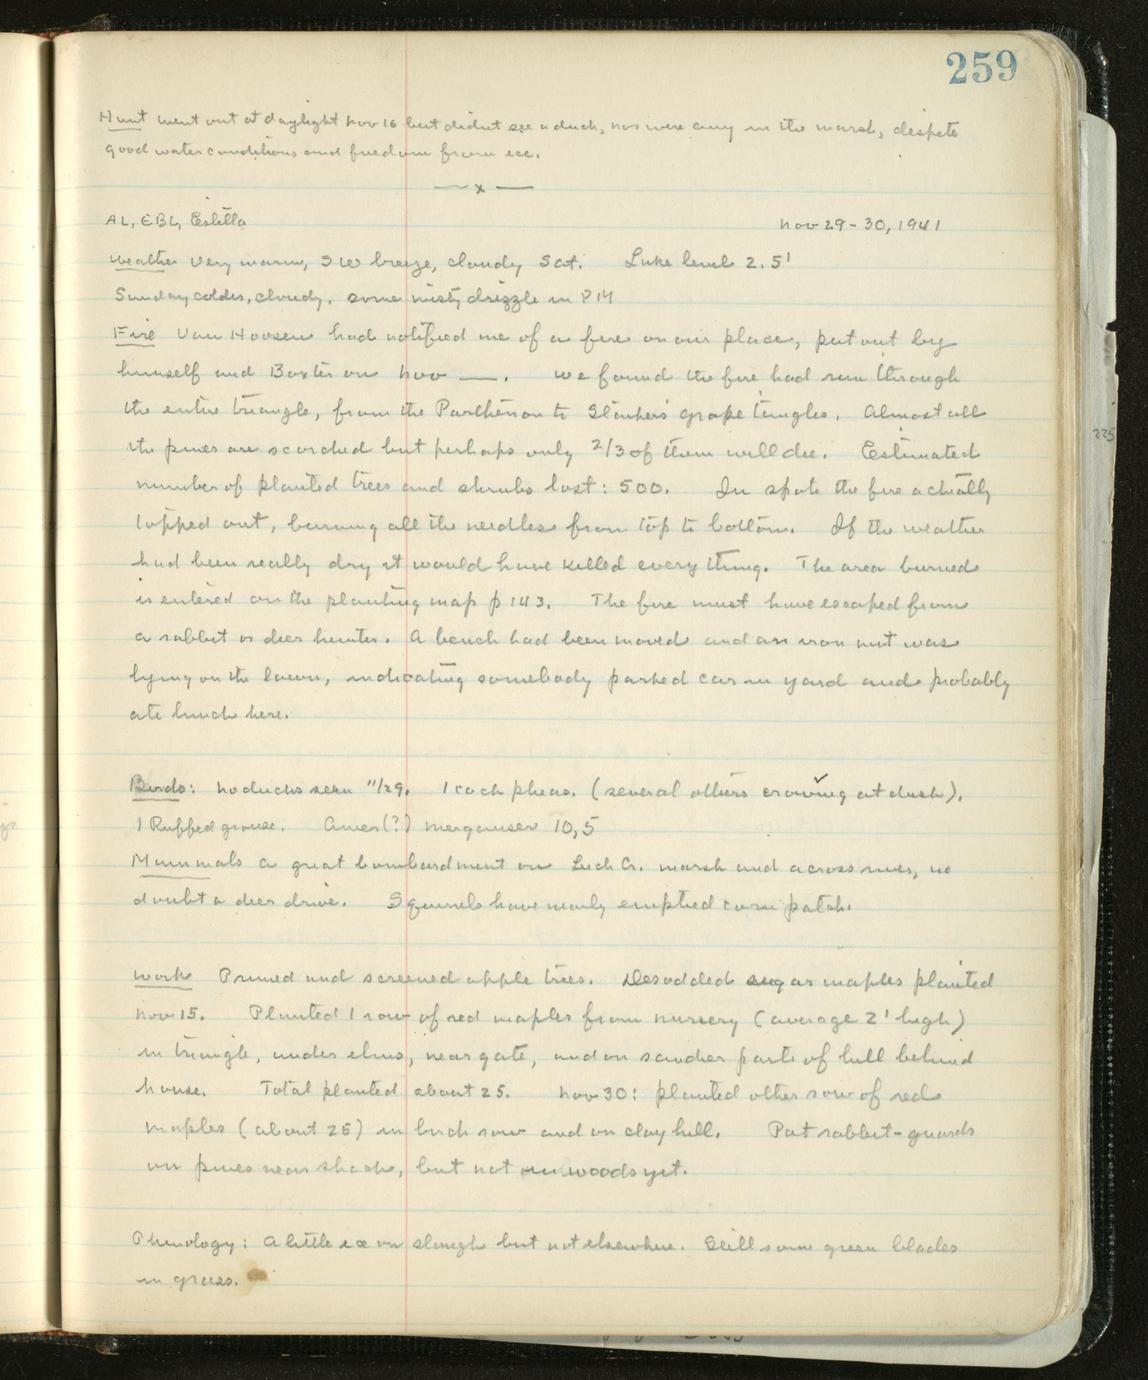 259
Hunt went out at daylight Nov 16 but didnt see a duck, nor were any in the marsh, despite
good water conditions and freedom from ice.
— x —
AL, EBL, Estella Nov 29-30, 1941
Weather Very warm, SW breeze, cloudy Sat. Lake level 2.5'
Sunday colder, cloudy, some misty drizzle in PM
Fire Van Hoosen had notified me of a fire on our place, put out by
himself and Baxter on Nov —. We found the fire had run through
the entire triangle, from the Parthenon to grape tangles. Almost all
the pines are scorched but perhaps only 2/3 of them will die. Estimated
number of planted trees and shrubs lost: 500. In spots the fire actually
topped out, burning all the needles from top to bottom. If the weather
had been really dry it would have killed everything. The area burned
is entered on the planting map p 143. The fire must have escaped from
a rabbit or deer hunter. A bench had been moved and an iron nut was
lying on the lawn, indicating somebody parked car in yard and probably
ate lunch here.
Birds: No ducks seen 11/29. 1 cock pheas. (several others crowing at dusk).
1 Ruffed grouse. Amer(?) merganser 10, 5
Mammals a great bombardment on Cr. marsh and across river, no
doubt a deer drive. Squirrels have nearly emptied corn patch.
Work Pruned and screened apple trees. Desodded sugar maples planted
Nov 15. Planted 1 row of red maples from nursery (average 2' high)
in triangle, under elms, near gate, and on sandier parts of hill behind
house. Total planted about 25. Nov 30: planted other row of red
maples (about 25) in birch row and on clay hill. Put rabbit-guards
on pines near shack, but not in woods yet.
Phenology: A little ice on slough but not elsewhere. Still some green blades
in grass.
225